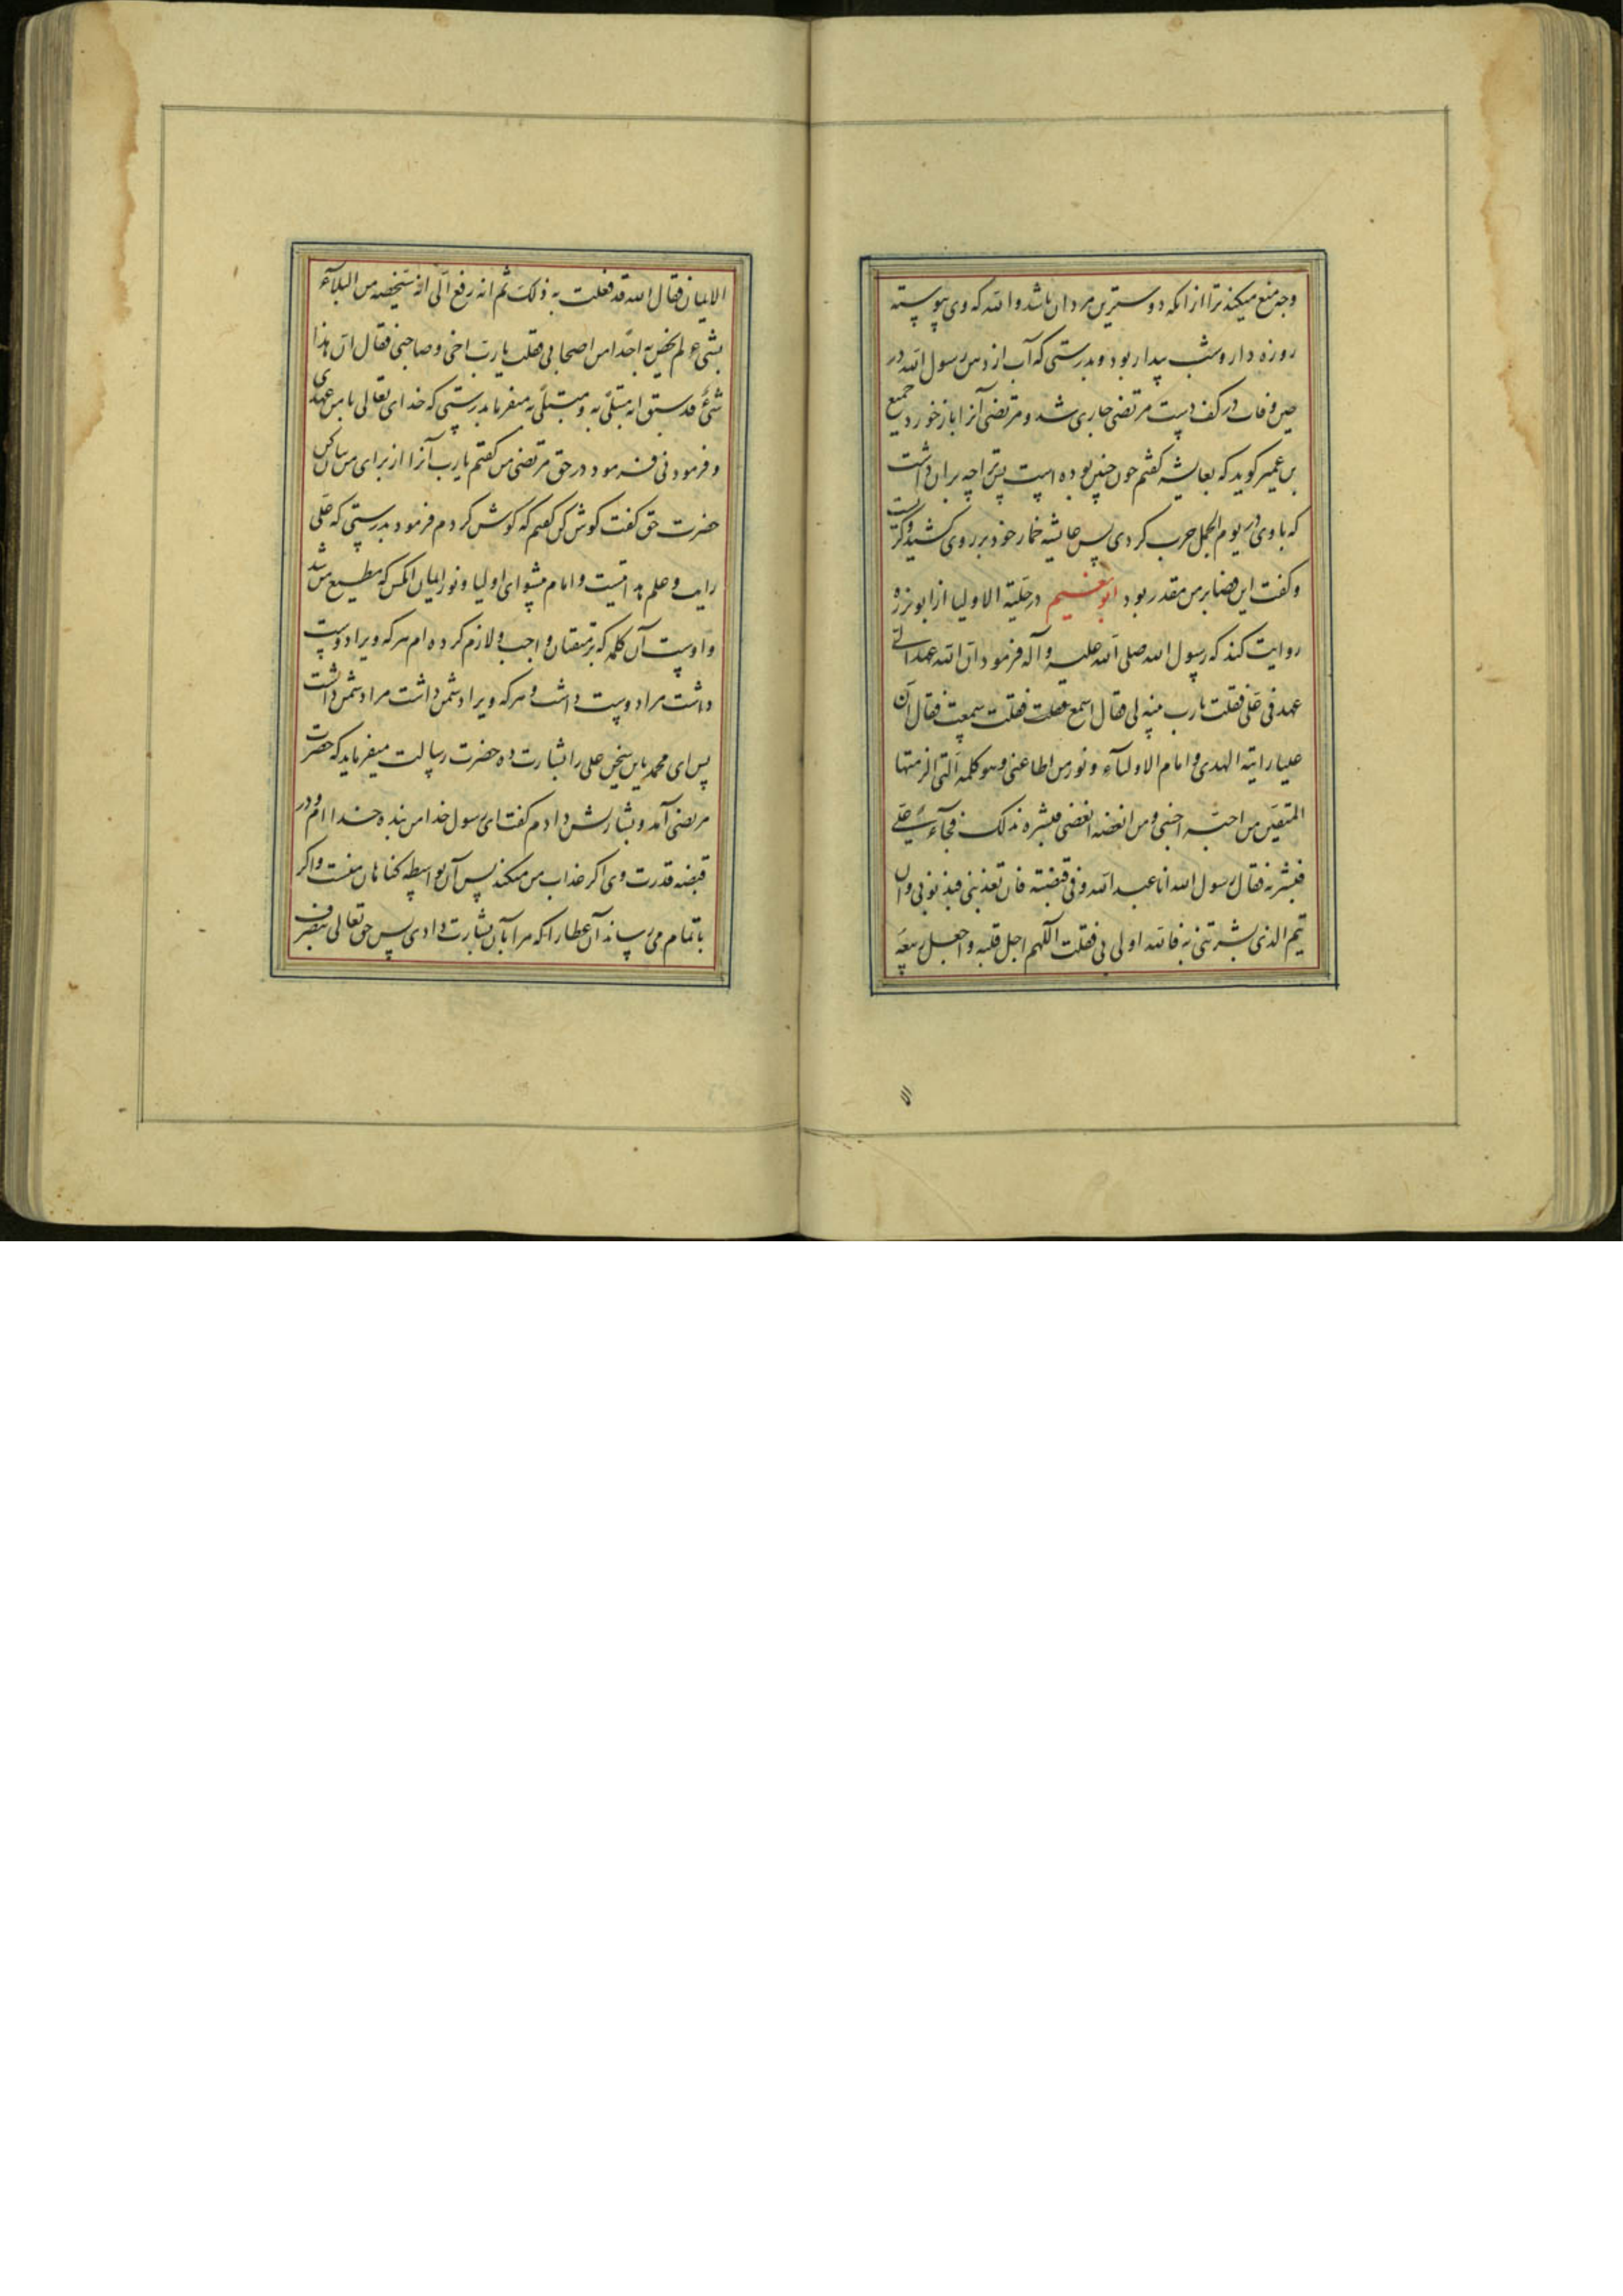 وجه منع میکند ترا از انکه دوسترین مردان باشد والله که وی پیوسته
روزه دار و شب بیدار بود و بدرستی که آب از دهن رسول الله در
حین وفات در کف دست مرتضی جاری شد و مرتضی آنرا باز خورد جمیع
بن عمیر کوید که بعایشه کفتم چون چنین بوده است پس ترا چه بران داشت
که با وی در یوم الجمل حرب کردی پس عایشه خمار خود بر روی کشید و کریست
و کفت این قضا بر من مقدر بود ابو نعیم در حلیة الاولیا از ابو برزه
روایت کند که رسول الله صلی الله علیه و آله فرمود ان الله عهد الی
عهد فی علی فقلت یا رب بینه لی فقال اسمع فقلت سمعت فقال ان
علیا رایة الهدی و امام الاولیآء و نور من اطاعنی و هو کلمة التی الزمتها
المتقین من احبه احبنی و من ابغضه ابغضنی فبشره بذلک فجآء علی
فبشرته فقال رسول الله انا عبد الله و فی قبضته فان تعذبنی فبذنوبی وان
یتم الذی بشرتنی به فالله اولی بی فقلت اللهم اجل قلبه واجعل ربیعه
الا
الایمان فقال الله قد فعلت به ذلک ثم انه رفع الی انه سیخصه من البلآء
بشیء لم یخص به احدا من اصحابی فقلت یا رب اخی وصاحبی فقال ان هذا
شیء قد سبق انه مبتلی به و مبتلی به میفرماید بدرستی که خدای تعالی با من عهدی
و فرمودنی فرمود در حق مرتضی من کفتم یا رب آنرا از برای من بیان کن
حضرت حق کفت کوش کن کفتم که کوش کردم فرمود بدرستی که علی
رایت و علم هدایتست و امام پیشوای اولیا و نور ایمان انکس که مطیع من شد
و اوست آن کلمه که بر متقیان واجب و لازم کرده ام هر که ویرا دوست
داشت مرا دوست داشت و هر که ویرا دشمن داشت مرا دشمن داشت
پس ای محمد باین سخن علی را بشارت ده حضرت رسالت میفرماید که حضرت
مرتضی آمد و بشارتش دادم کفت ای رسول خدا من بنده خدا ام و در
قبضه قدرت وی اکر عذاب من میکند پس آن بواسطه کناهان منست و اکر
باتمام می رساند آن عطا را که مرا بآن بشارت دادی پس حق تعالی بتصرف